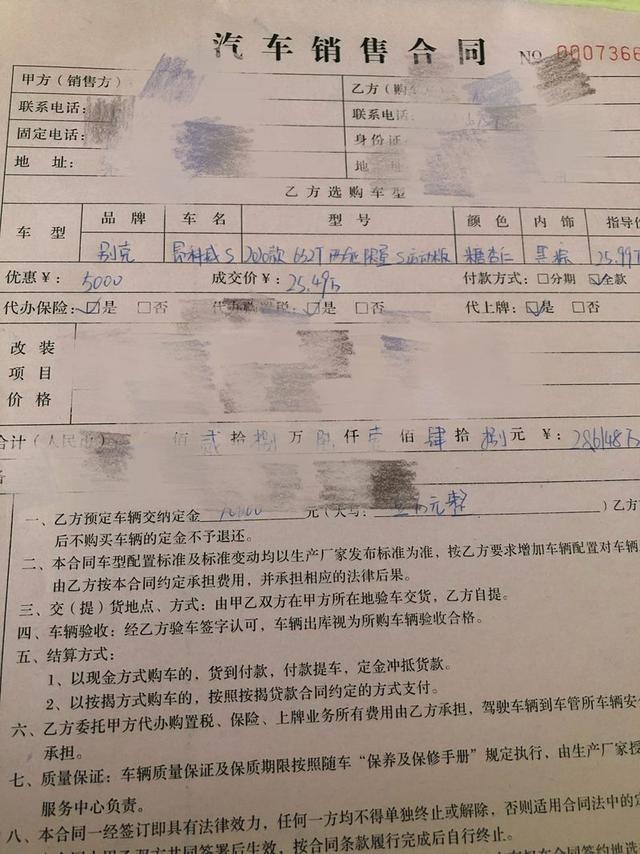 汽车销售合同 NO 0007366
甲方（销售方） 乙方（购
联系电话： 联系电话：
固定电话： 身份证
地 址： 地
乙方选购车型
车 型 品 牌 车 名 型 号 颜 色 内 饰 指导价
别克 昂科威S 2020款 652T 四驱 限量 S运动版 糖杏仁 黑棕 25.99万
优惠¥： 5000 成交价¥： 25.49万 付款方式：□分期 ☑全款
代办保险：☑是 □否 代办 税：☑是 □否 代上牌：☑是 □否
改装
项目
价格
合计（人民币） 佰 贰 拾 捌 万 陆 仟 壹 佰 肆 拾 捌 元 ¥： 28.6148万
一、乙方预定车辆交纳定金 元（大写： 元整 ）乙方
后不购买车辆的定金不予退还。
二、本合同车型配置标准及标准变动均以生产厂家发布标准为准，按乙方要求增加车辆配置对车辆
由乙方按本合同约定承担费用，并承担相应的法律后果。
三、交（提）货地点、方式：由甲乙双方在甲方所在地验车交货，乙方自提。
四、车辆验收：经乙方验车签字认可，车辆出库视为所购车辆验收合格。
五、结算方式：
1、以现金方式购车的，货到付款，付款提车，定金冲抵货款。
2、以按揭方式购车的，按照按揭贷款合同约定的方式支付。
六、乙方委托甲方代办购置税、保险、上牌业务所有费用由乙方承担，驾驶车辆到车管所车辆安
承担。
七、质量保证：车辆质量保证及保质期限按照随车“保养及保修手册”规定执行，由生产厂家授
服务中心负责。
八、本合同一经签订即具有法律效力，任何一方均不得单独终止或解除，否则适用合同法中的定
甲乙双方共同签署后生效，按合同条款履行完成后自行终止。